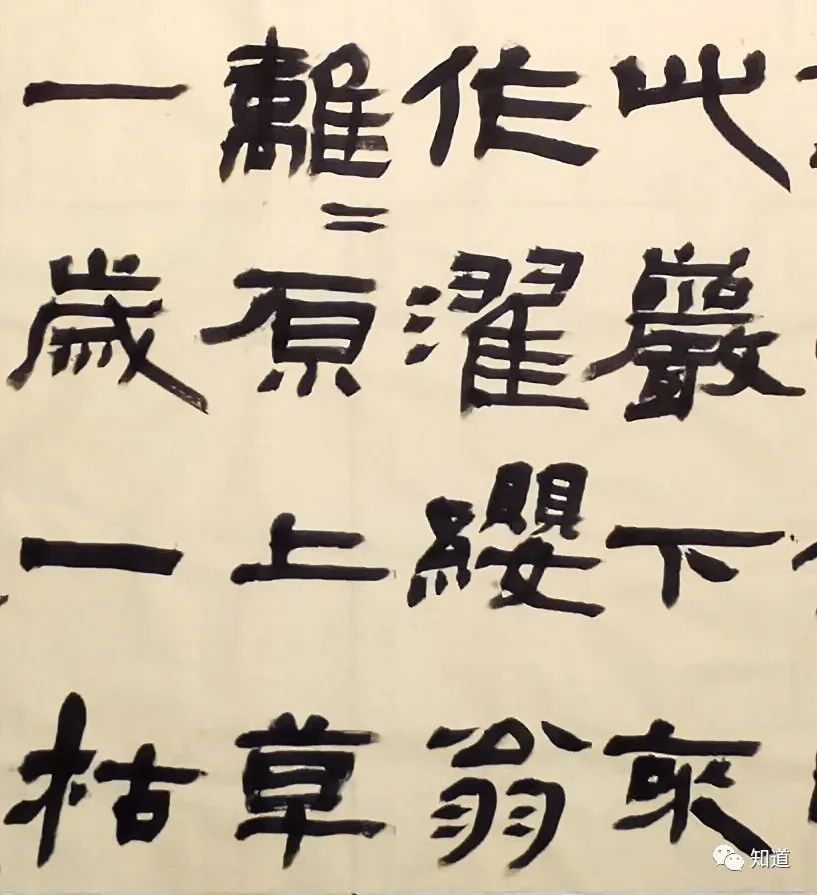 此巖下來
作濯纓翁
離〻原上草
一歲一枯
知道